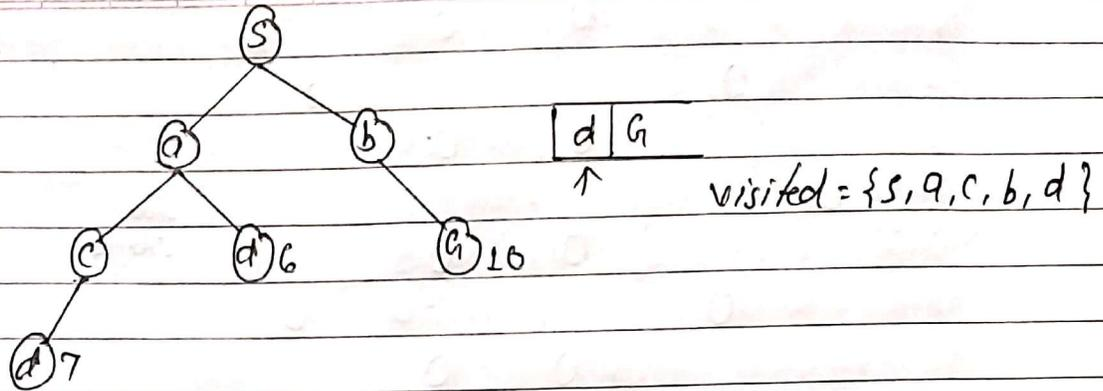 S
a b
d G
↑
visited = {s, a, c, b, d}
c d 6 G 10
d 7